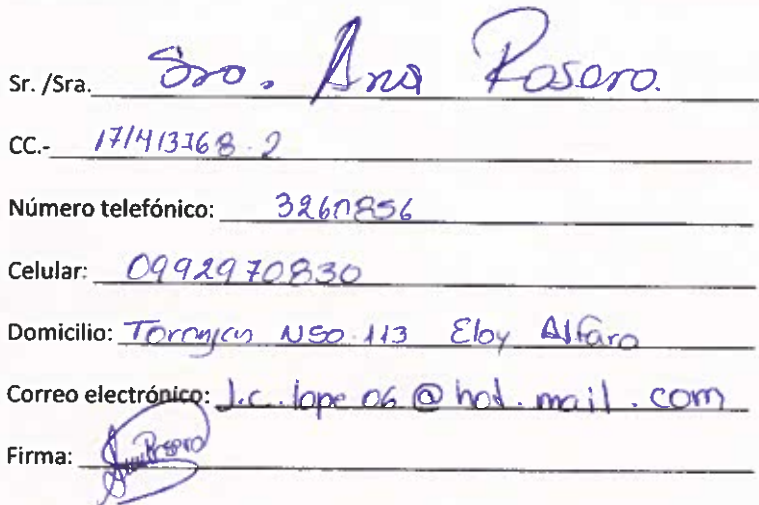 Sr. /Sra. Sra. Ana Rosero.
CC.- 171413768-2
Número telefónico: 3260856
Celular: 0992970830
Domicilio: N50-113 Eloy Alfaro
Correo electrónico: J.c.lope06@hot.mail.com
Firma: Ana Rosero